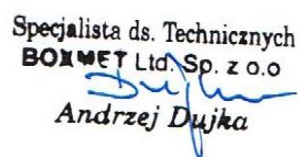 Specjalista ds. Technicznych
BOXMET Ltd. Sp. z o.o
Andrzej Dujka